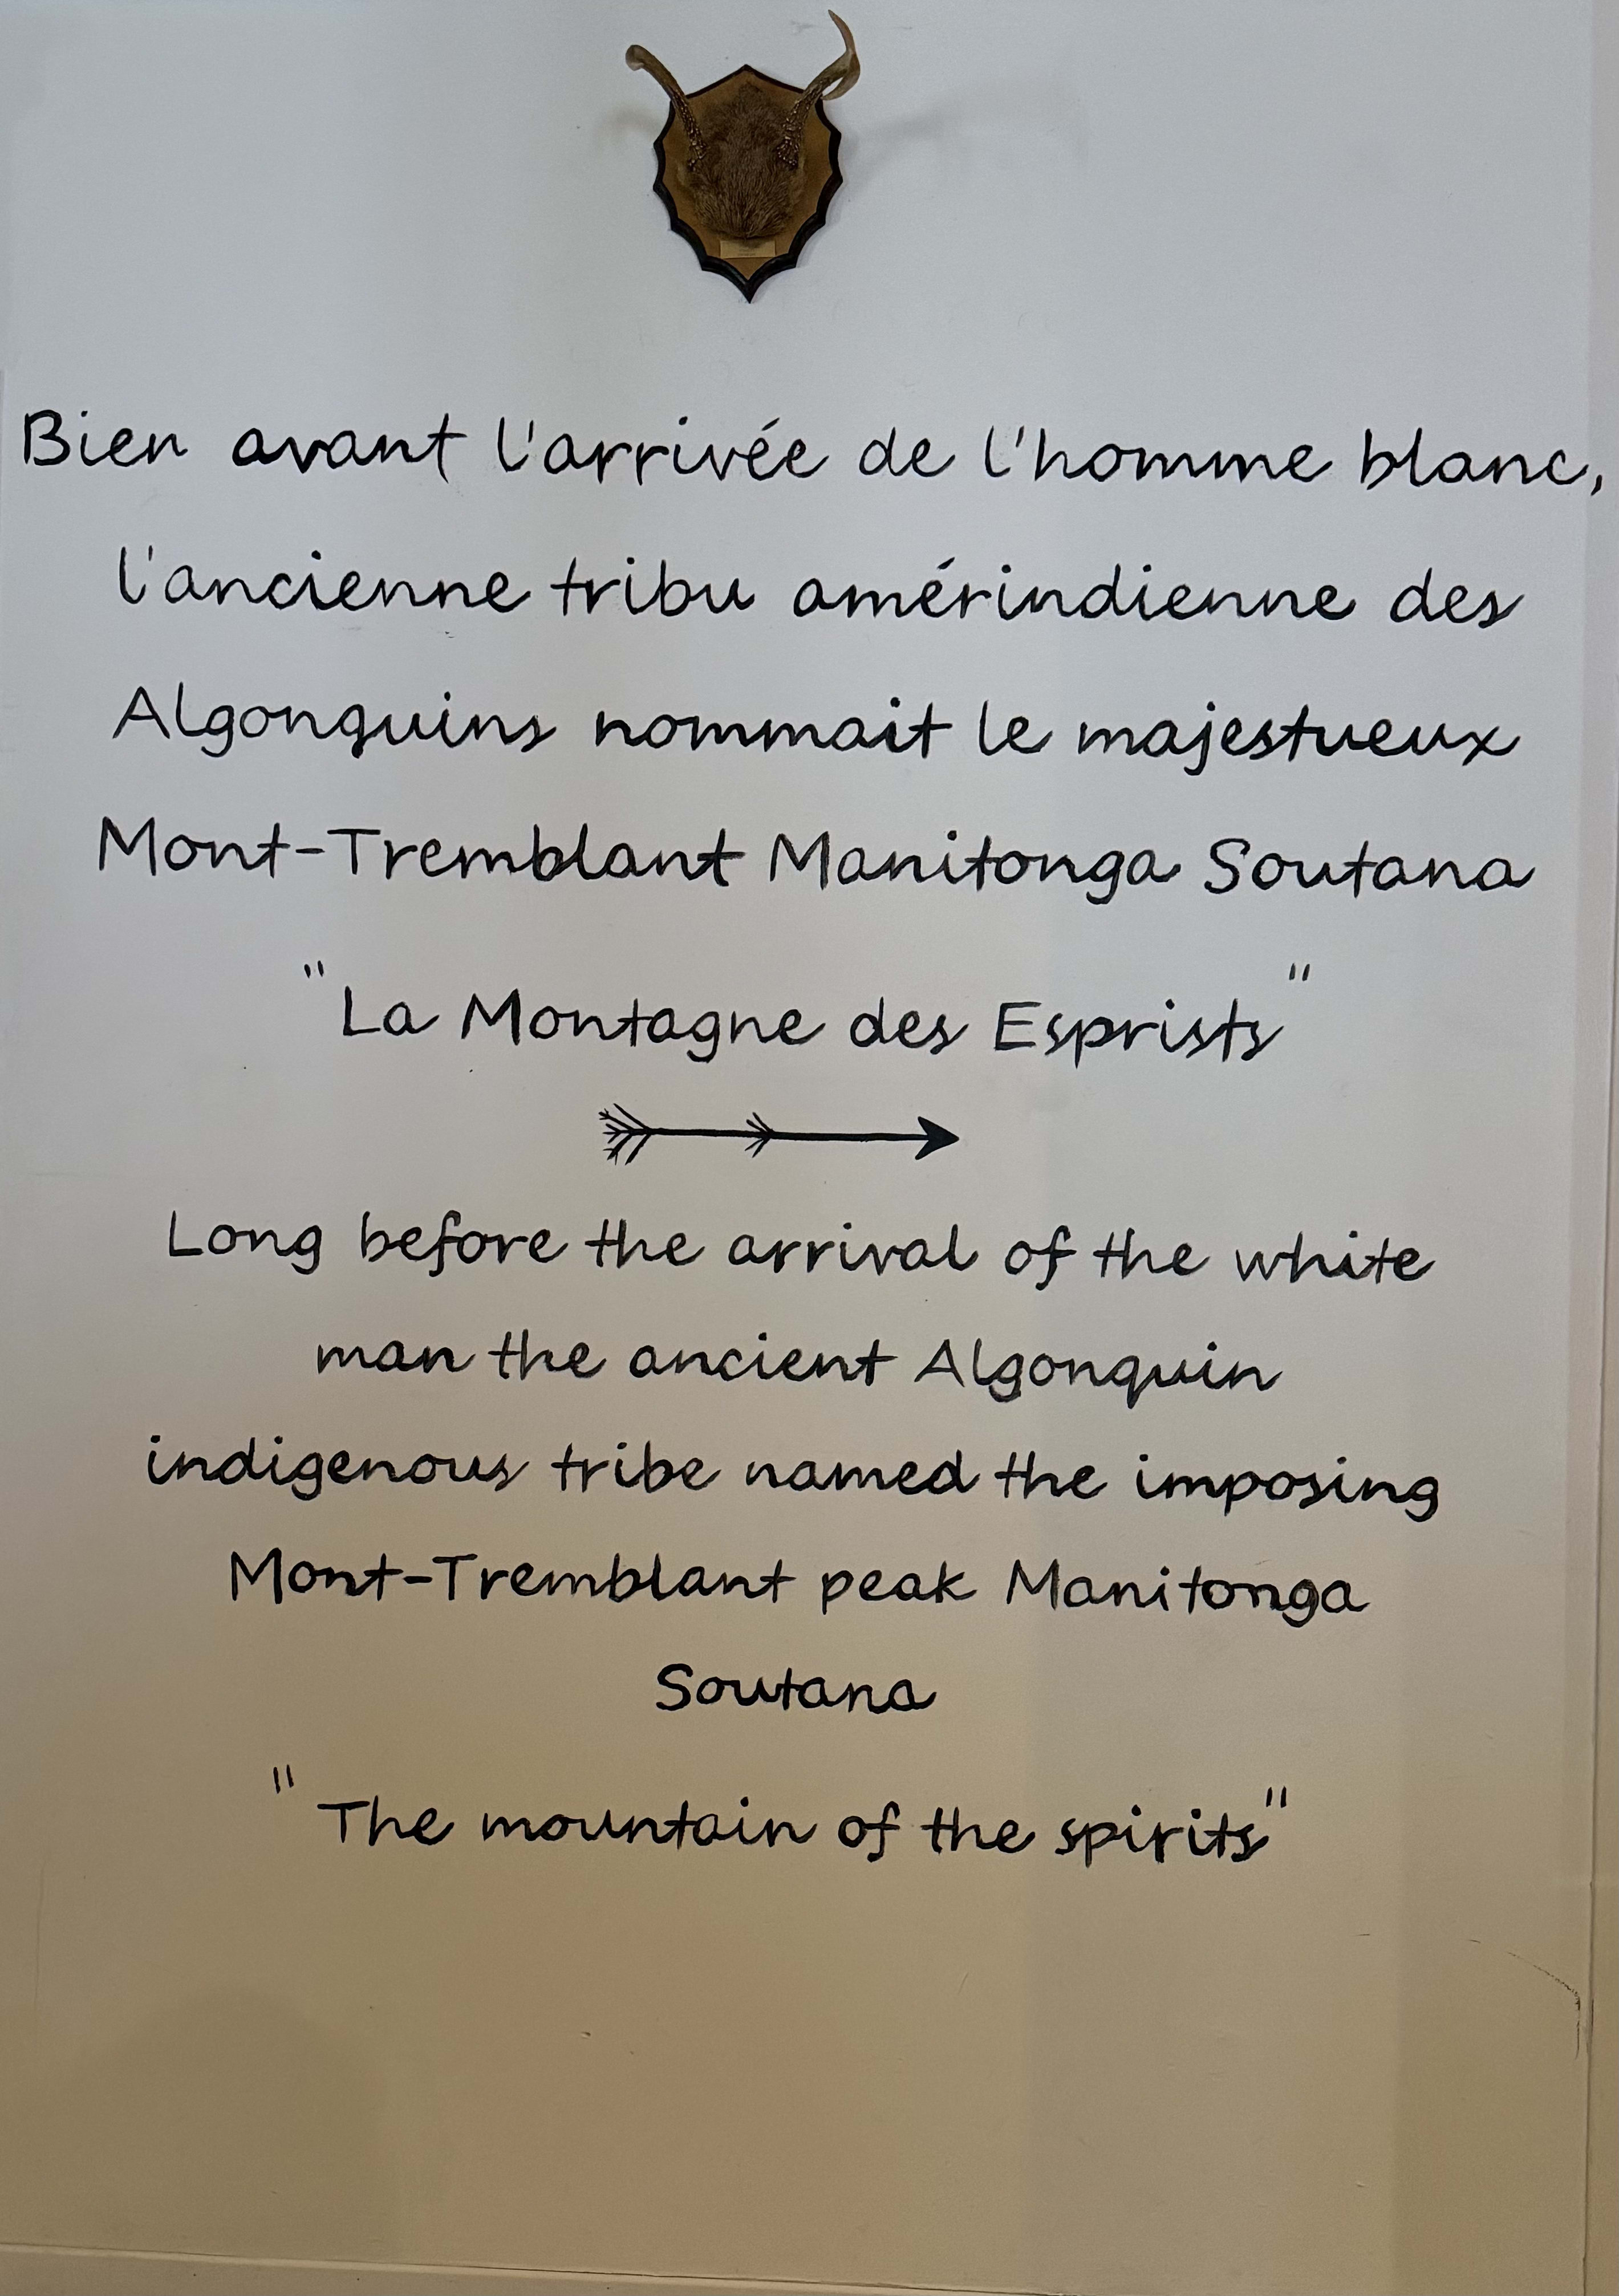 Bien avant l'arrivée de l'homme blanc,
l'ancienne tribu amérindienne des
Algonquins nommait le majestueux
Mont-Tremblant Manitonga Soutana
"La Montagne des Esprists"
Long before the arrival of the white
man the ancient Algonquin
indigenous tribe named the imposing
Mont-Tremblant peak Manitonga
Soutana
"The mountain of the spirits"